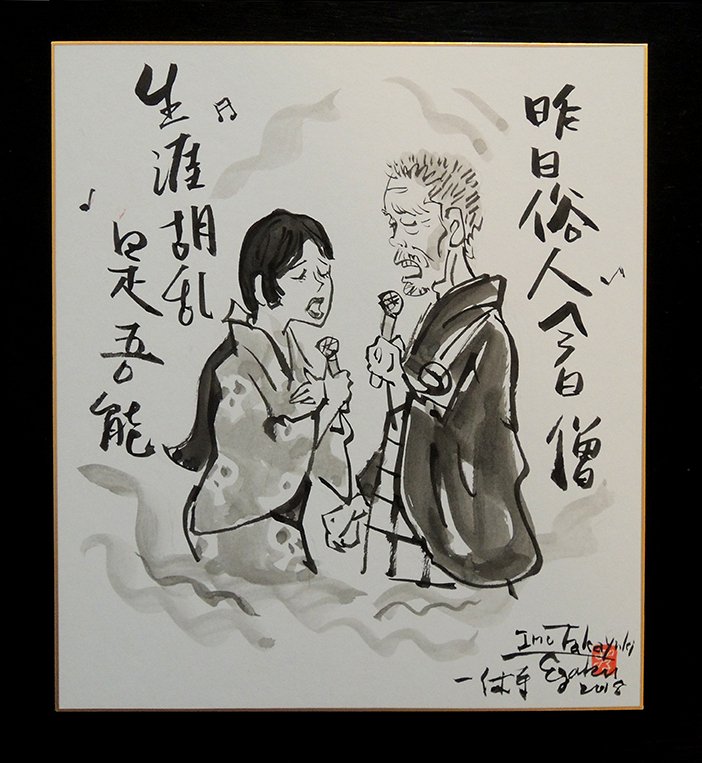 昨日俗人今日僧
生涯胡乱
是吾能
Ino Takayuki
Egaku
2018
一休筆